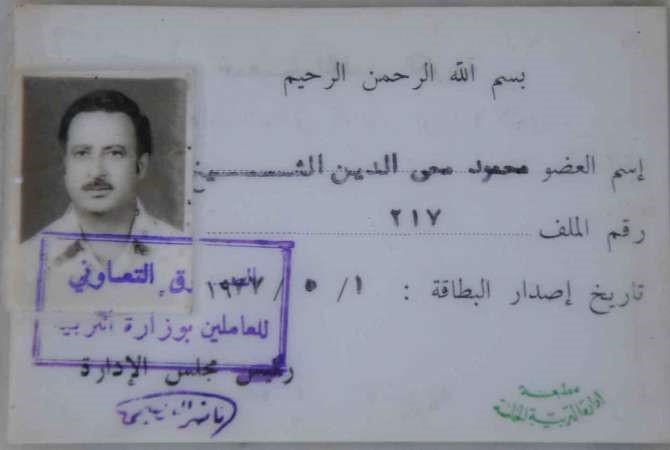 بسم الله الرحمن الرحيم
إسم العضو محمود محى الدين الشـــــيخ
رقم الملف ٢١٧
تاريخ إصدار البطاقة : ١ / ٥ / ١٩٧٧
الصندوق التعاوني
للعاملين بوزارة التربية
رئيس مجلس الإدارة
مطبعة